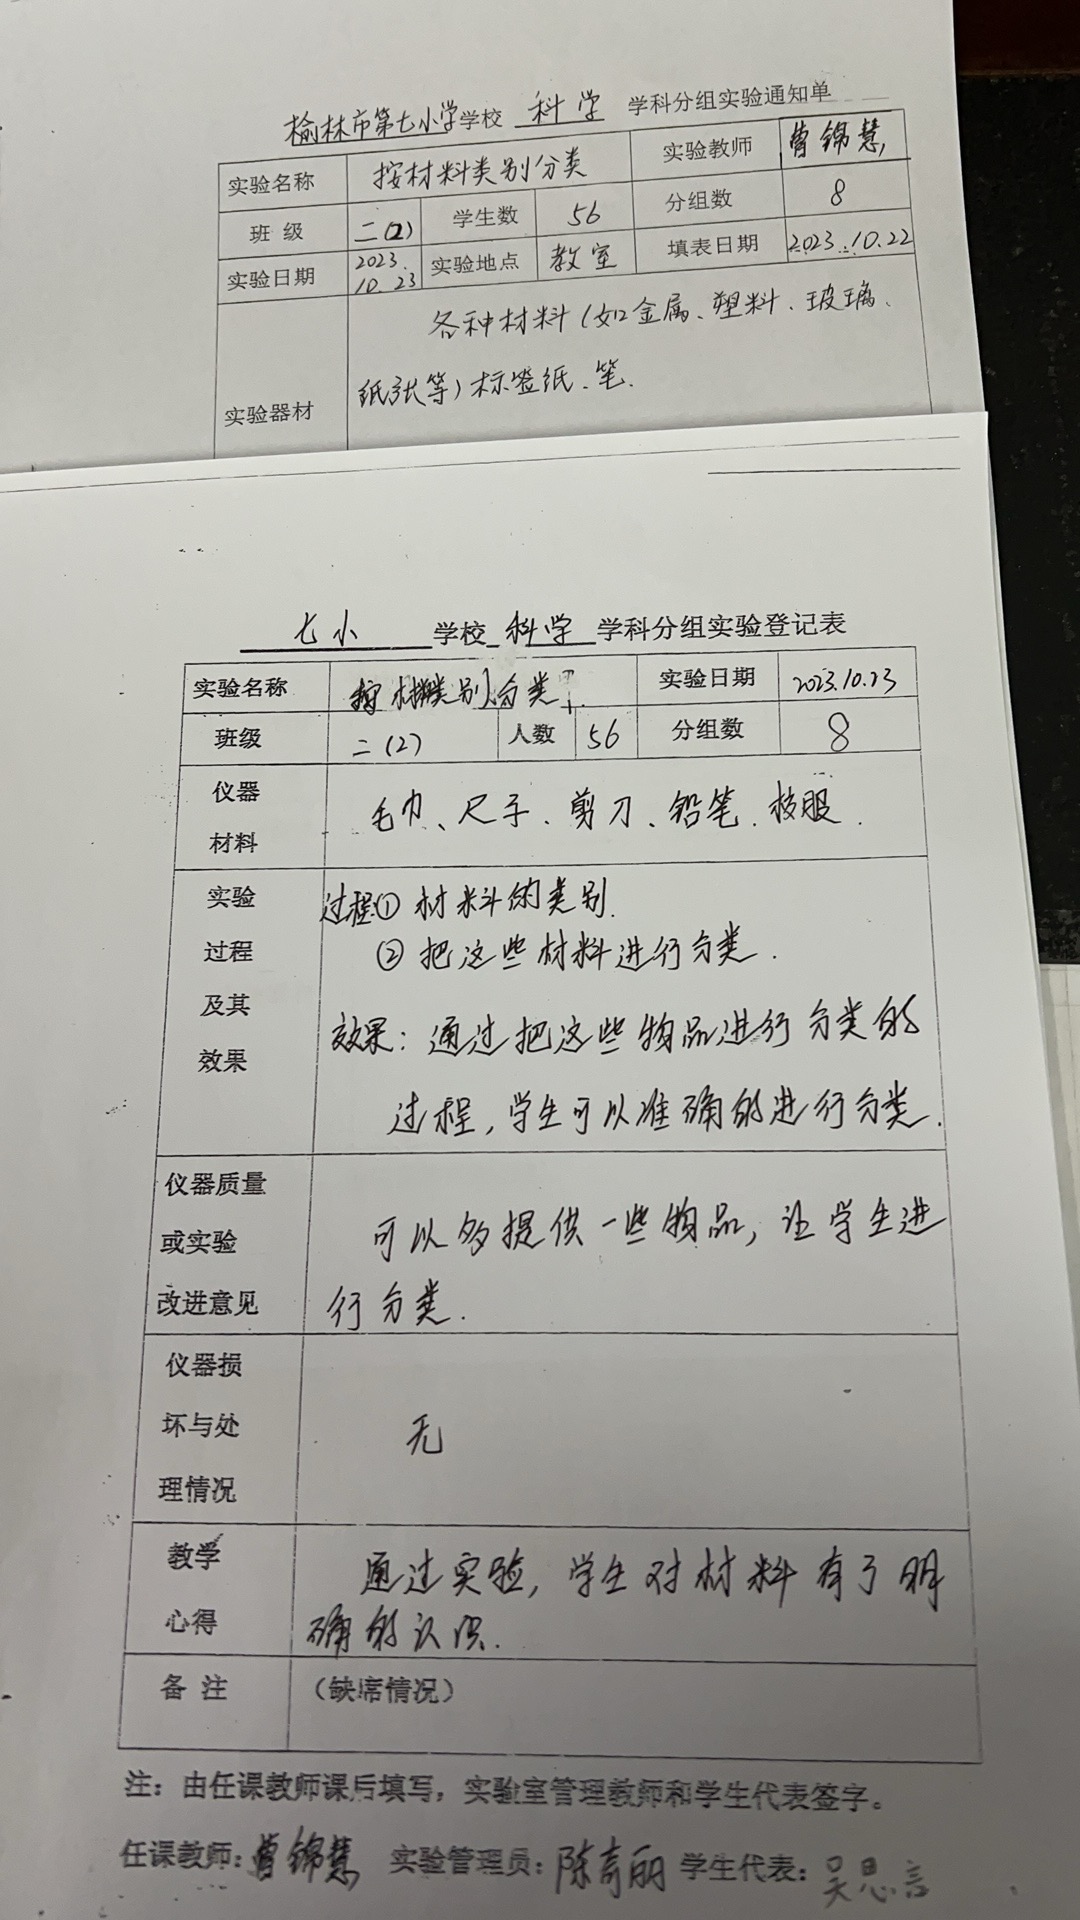 榆林市第七小学学校 科学 学科分组实验通知单
实验名称 按材料类别分类 实验教师 曹锦慧
班 级 二(2) 学生数 56 分组数 8
实验日期 2023.10.23 实验地点 教室 填表日期 2023.10.22
实验器材 各种材料(如金属、塑料、玻璃、
纸张等)标签纸、笔.
七小 学校 科学 学科分组实验登记表
实验名称 按材料类别分类 实验日期 2023.10.23
班级 二(2) 人数 56 分组数 8
仪器
材料
毛巾、尺子、剪刀、铅笔、校服.
实验
过程
及其
效果
过程:① 材料的类别.
② 把这些材料进行分类.
效果：通过把这些物品进行分类的
过程,学生可以准确的进行分类.
仪器质量
或实验
改进意见
可以多提供一些物品,让学生进
行分类.
仪器损
坏与处
理情况
无
教学
心得
通过实验,学生对材料有了明
确的认识.
备 注 （缺席情况）
注：由任课教师课后填写，实验室管理教师和学生代表签字。
任课教师:曹锦慧 实验管理员:陈奇丽 学生代表:吴思言